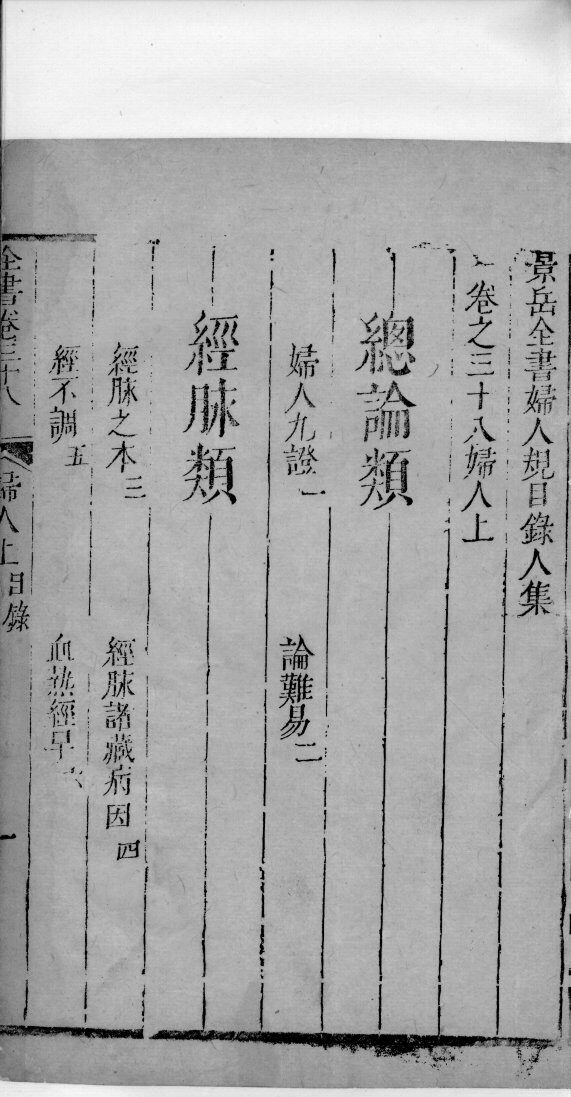 景岳全書婦人規目錄人集
卷之三十八婦人上
總論類
婦人九證一
論難易二
經脉類
經脉之本三
經脉諸藏病因四
經不調五
血熱經早六
全書卷三十八
婦人上目錄
一